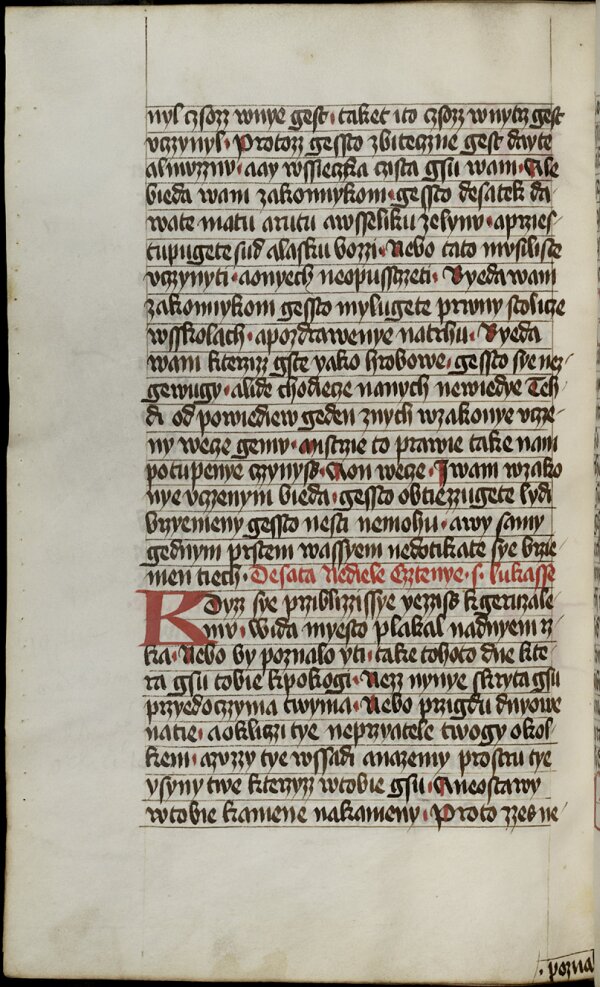 nyl czsozz wnye gest · taket ito czsozz wnytrz gest
vczynyl · Protozz gessto zbiteczne gest dayte
almuzznu · aay wssieczka czista gsu wam · Ale
bieda wam zakonnykom · gessto desatek da
wate matu arutu awsseliku zelynu · aprzies-
tupugete sud alasku bozzi · Nebo tato musiliste
vczynyti · aonyech neopusstzeti · Byeda wam
zakonnykom gessto mylugete prwny stolicze
wsskolach · apozdrawenye natrhu · Byeda
wam kterzizz gste yako hrobowe · gessto sye nez-
gewugy · alide chodiecze nanych newiedye Teh-
di od powiediew geden znych wzakonye vcze-
ny wecze gemu · mistrzie to prawie take nam
potupenye czynyss · Aon wecze · J wam wzako
nye vczenym bieda · gessto obtiezzugete lydi
brzyemeny gessto nesti nemohu · awy samy
gednym prstem wassyem nedotikate sye brzie-
men tiech · Desata Nediele Cztenye · s · lukasse
Kdyzz sye prziblizzissye yezziss kgeruzale-
mu · Wida myesto plakal nadnyem rz-
ka · Nebo by poznalo yti · take tohoto dne kte-
ra gsu tobie kpokogi · Nezz nynye skryta gsu
przyedoczyma twyma · Nebo przigdu dnyowe
natie · aokliczi tye neprzyatele twogy okol-
kem · azuzzy tye wssadi anazemy prostru tye
ysyny twe kterzyzz wtobie gsu · Aneostawy
wtobie kamene nakameny · Proto zzes ne-
· pozna